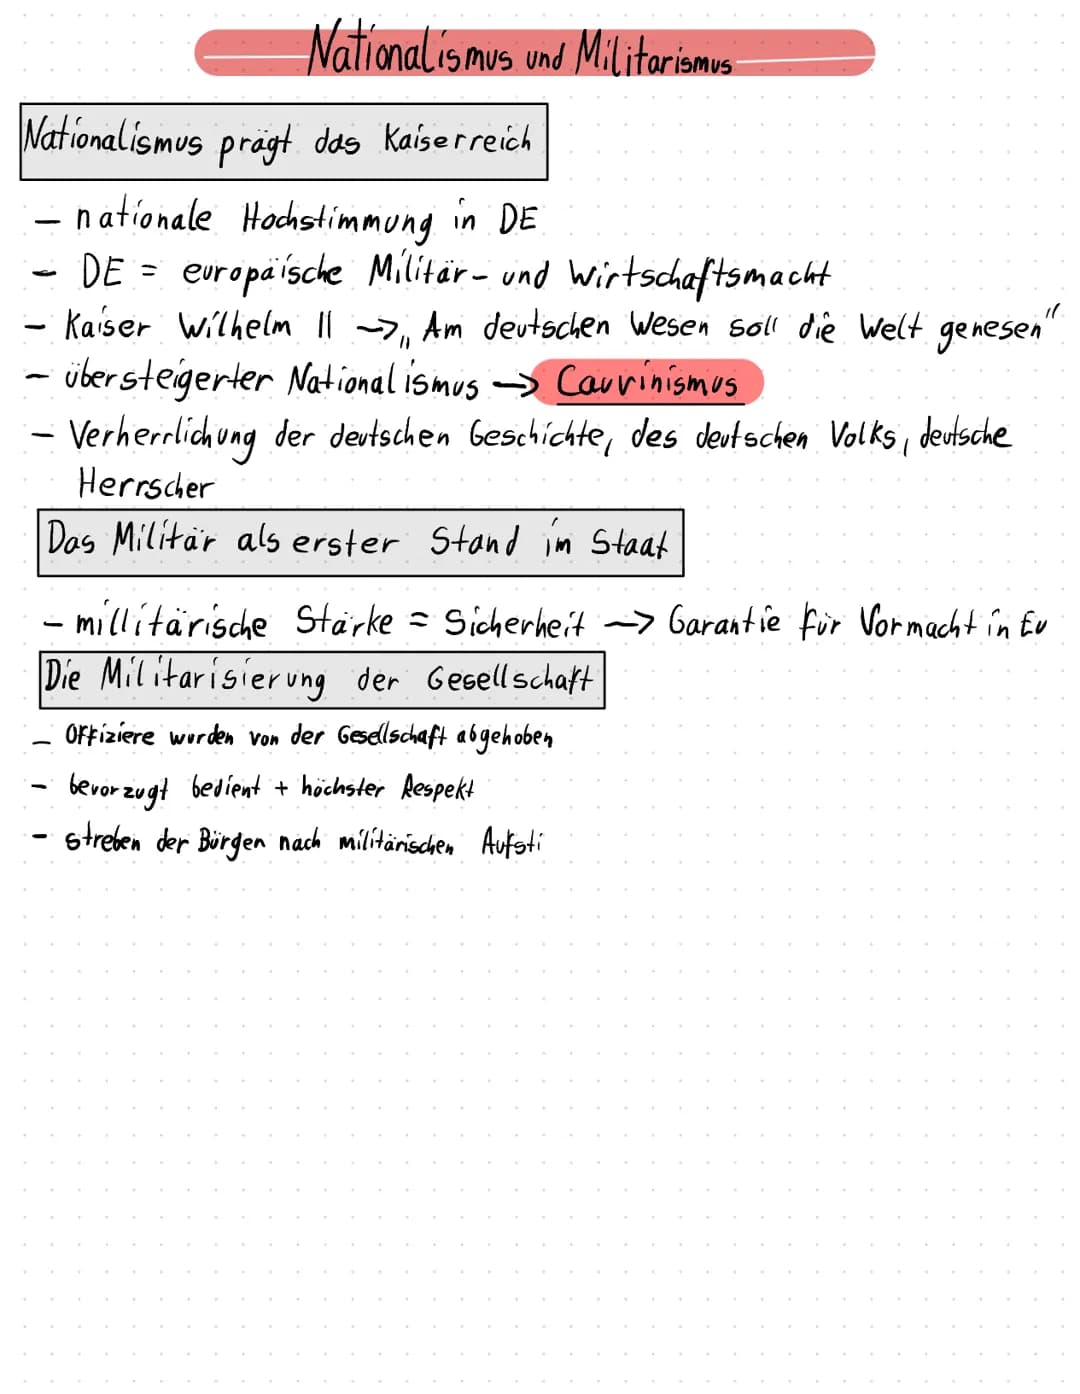 Nationalismus und Militarismus
Nationalismus prägt das Kaiserreich
- nationale Hochstimmung in DE
- DE = europäische Militär- und Wirtschaftsmacht
- Kaiser Wilhelm II -> „Am deutschen Wesen soll die Welt genesen“
- übersteigerter Nationalismus -> Cauvinismus
- Verherrlichung der deutschen Geschichte, des deutschen Volks, deutsche
Herrscher
Das Militär als erster Stand im Staat
- millitärische Stärke = Sicherheit -> Garantie für Vormacht in Eu
Die Militarisierung der Gesellschaft
- Offiziere wurden von der Gesellschaft abgehoben
- bevorzugt bedient + höchster Respekt
- streben der Bürgen nach militärischen Aufsti